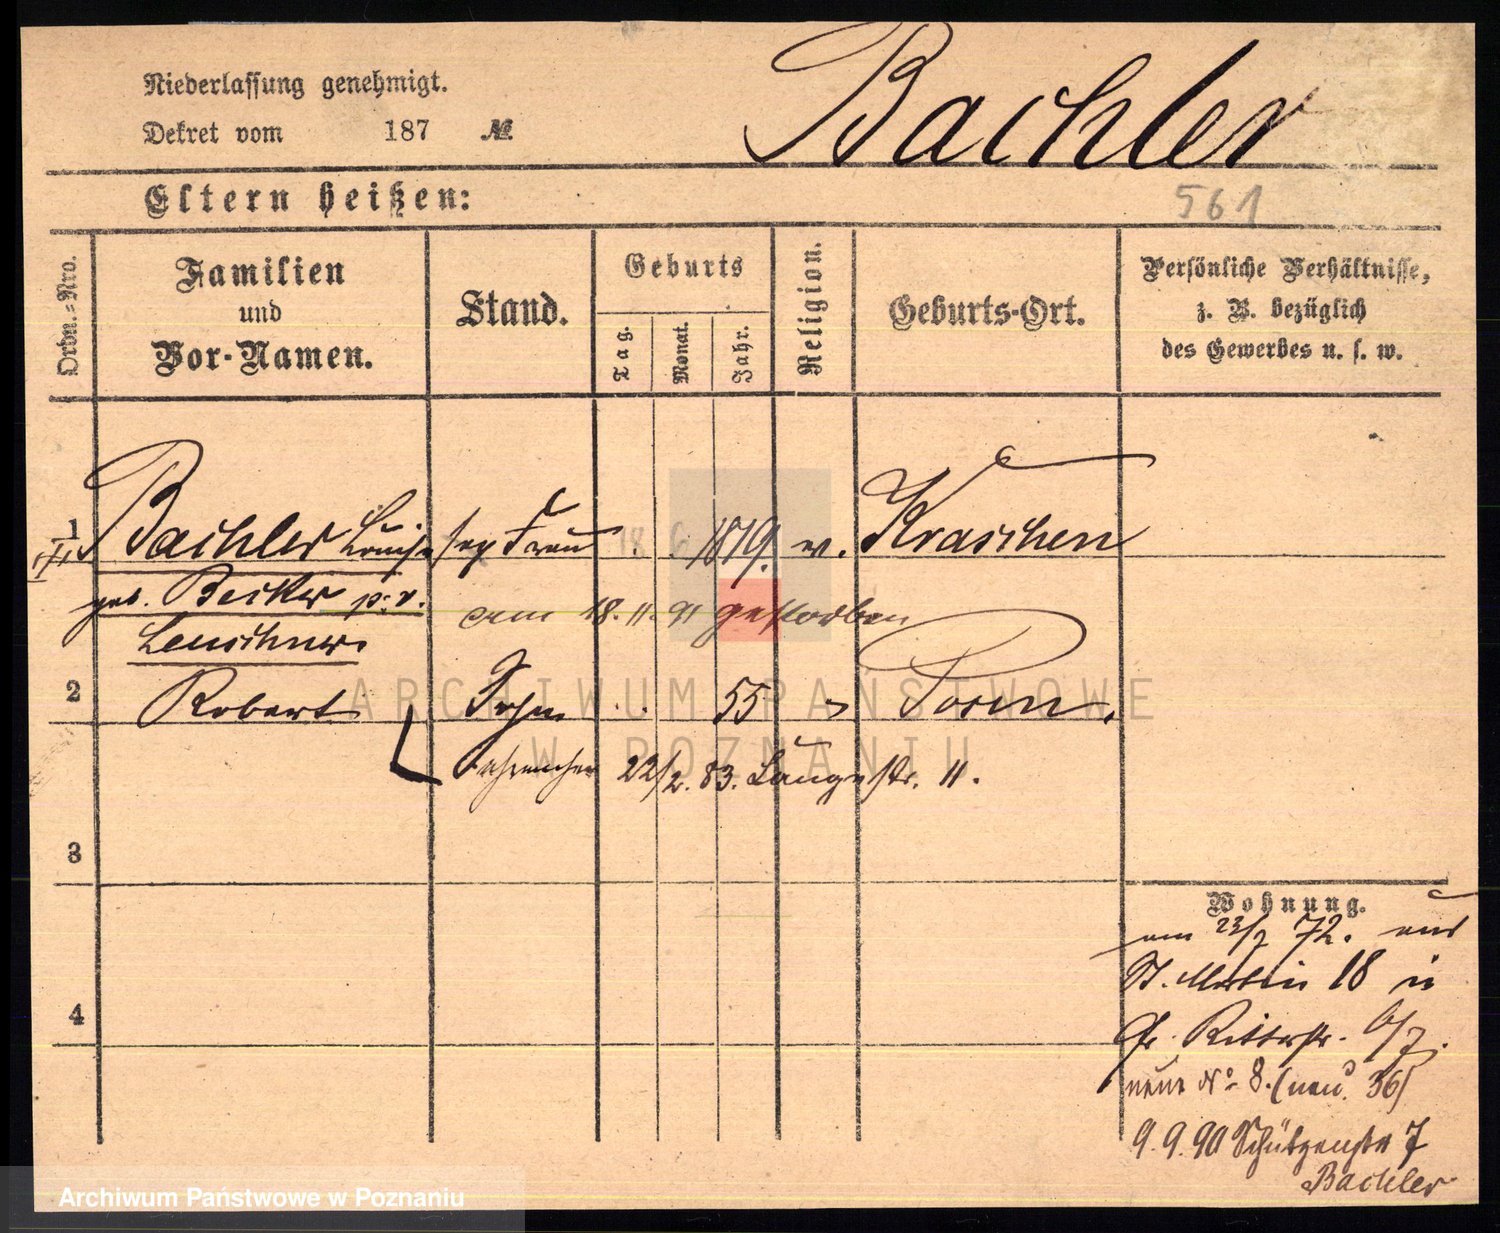 Niederlassung genehmigt.
Dekret vom 187 №
Bachler
Eltern heißen:
561
Ordn.=Nro.
Familien
und
Vor-Namen.
Stand.
Geburts
Tag.
Monat.
Jahr.
Religion.
Geburts-Ort.
Persönliche Verhältnisse,
z. B. bezüglich
des Gewerbes u. s. w.
1 Bachler Louise sep Frau 1819. ev. Kraschen
geb. Becker p. v.
am 18. 11. 91 gestorben
Leuschner
2 Robert Sohn 55 Posen.
22/2. 83. Langestr. 11.
3
4
Wohnung.
am 23/7 72. aus
St. Martin 18 in
Gr. Ritterstr. 6/7.
neue No 8. (neu 36)
9. 9. 90 Schützenstr 7
Bachler
ARCHIWUM PAŃSTWOWE
W POZNANIU
Archiwum Państwowe w Poznaniu